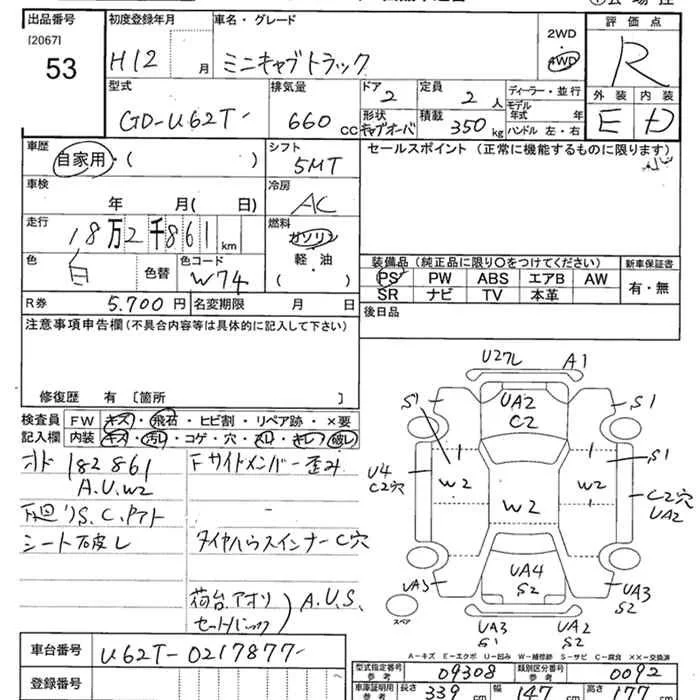 出品番号 初度登録年月 車名・グレード 2WD 評価点
[2067] 53 H12 月 ミニキャブトラック 4WD R
型式 排気量 ドア 定員 ディーラー・並行 外装 内装
GD-U62T- 660 CC 2 2 人 モデル年式 年
形状 キャブオーバ 積載 350 kg ハンドル 左・右 E D
車歴 シフト セールスポイント(正常に機能するものに限ります)
自家用・( ) 5MT
車検 冷房
年 月( 日) AC
走行 燃料
18万2千861 km ガソリン
色 色コード 軽・油 装備品(純正品に限り〇をつけてください) 新車保証書
白 色替 W74 ( ) PS PW ABS エアB AW 有・無
R券 5.700円 名変期限 月 日 SR ナビ TV 本革
注意事項申告欄(不具合内容等は具体的に記入して下さい) 後日品
修復歴 有 [箇所 ]
検査員 FW キズ・飛石・ヒビ割・リペア跡・×要
記入欄 内装 キズ・汚レ・コゲ・穴・スレ・キレ・破レ
オド 182861 Fサイドメンバー歪み
A.U.W2
下廻りS.C.
シート破レ タイヤハウスインナーC穴
荷台アオリ A.U.S.
セットバック
U27L A1
UA2
C2
S1 S1
S1
U4
C2穴
W2 W2 W2
C2穴
UA2
UA4
S2
UA3
S2
スペア
UA3
S1
UA2
S2
A-キズ E-エクボ U-凹み W-補修跡 S-サビ C-腐食 ××-交換済
車台番号 U62T-0217877-
登録番号
型式指定番号 参考 09308 類別区分番号 参考 0092
車庫証明用 参考 長さ 339 cm 幅 147 cm 高さ 177 cm